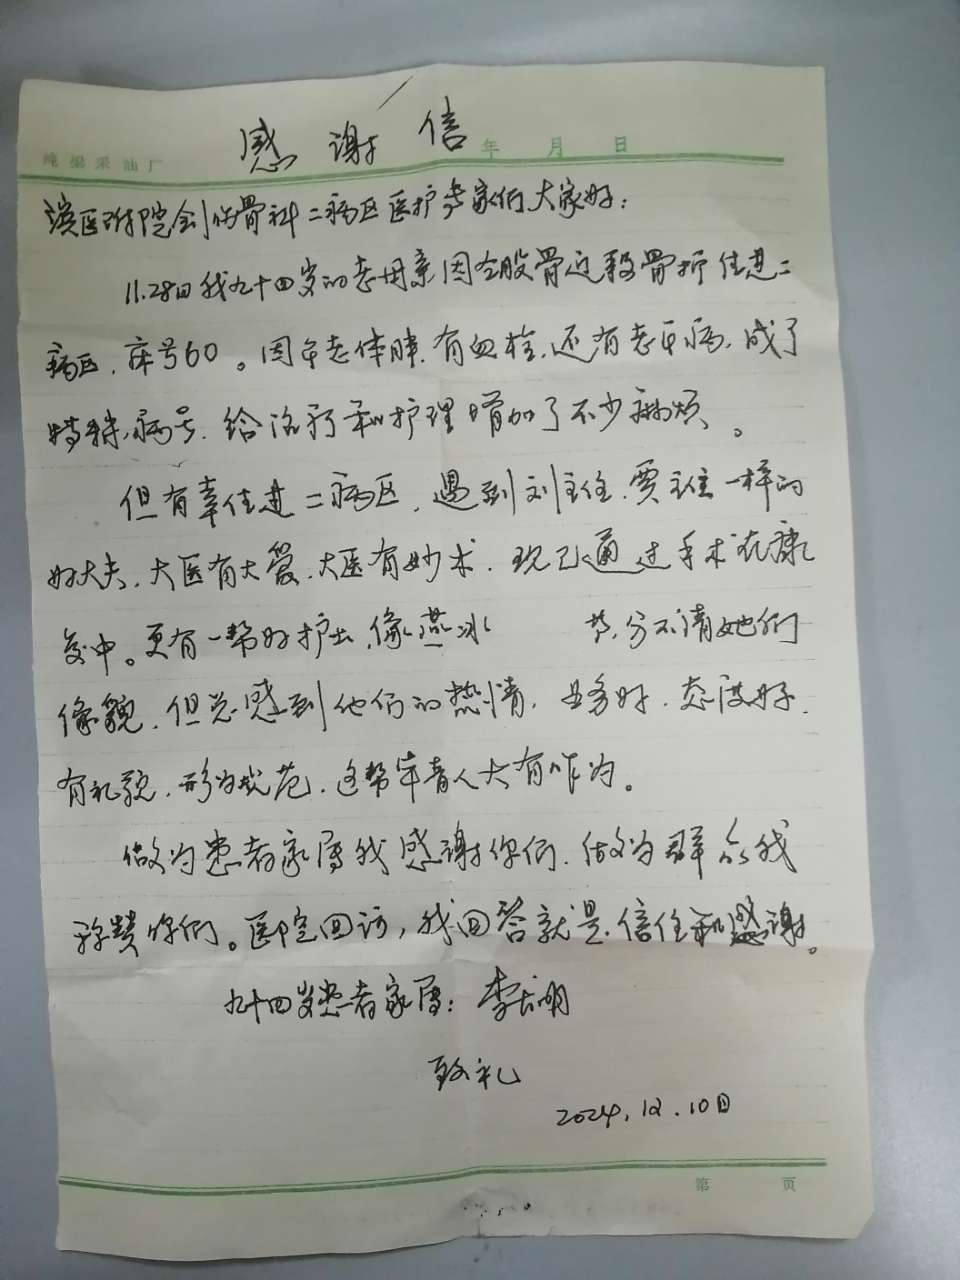 感谢信
纯梁采油厂 年 月 日
滨医附院创伤骨科二病区医护专家们大家好:
11.28日我九十四岁的老母亲因左股骨近段骨折住进二
病区,床号60。因年老体胖,有血栓,还有老年病,成了
特殊病号,给治疗和护理增加了不少麻烦。
但有幸住进二病区,遇到刘主任,贾主任一样的
好大夫,大医有大爱,大医有妙术,现已通过手术在康
复中。更有一帮好护士,像燕冰 等,分不清她们
像貌,但总感到他们的热情,业务好,态度好,
有礼貌,形为规范,这帮年青人大有作为。
做为患者家属我感谢你们,做为群众我
称赞你们。医院回访,我回答就是信任和感谢。
九十四岁患者家属:李明
致礼
2024.12.10日
第 页